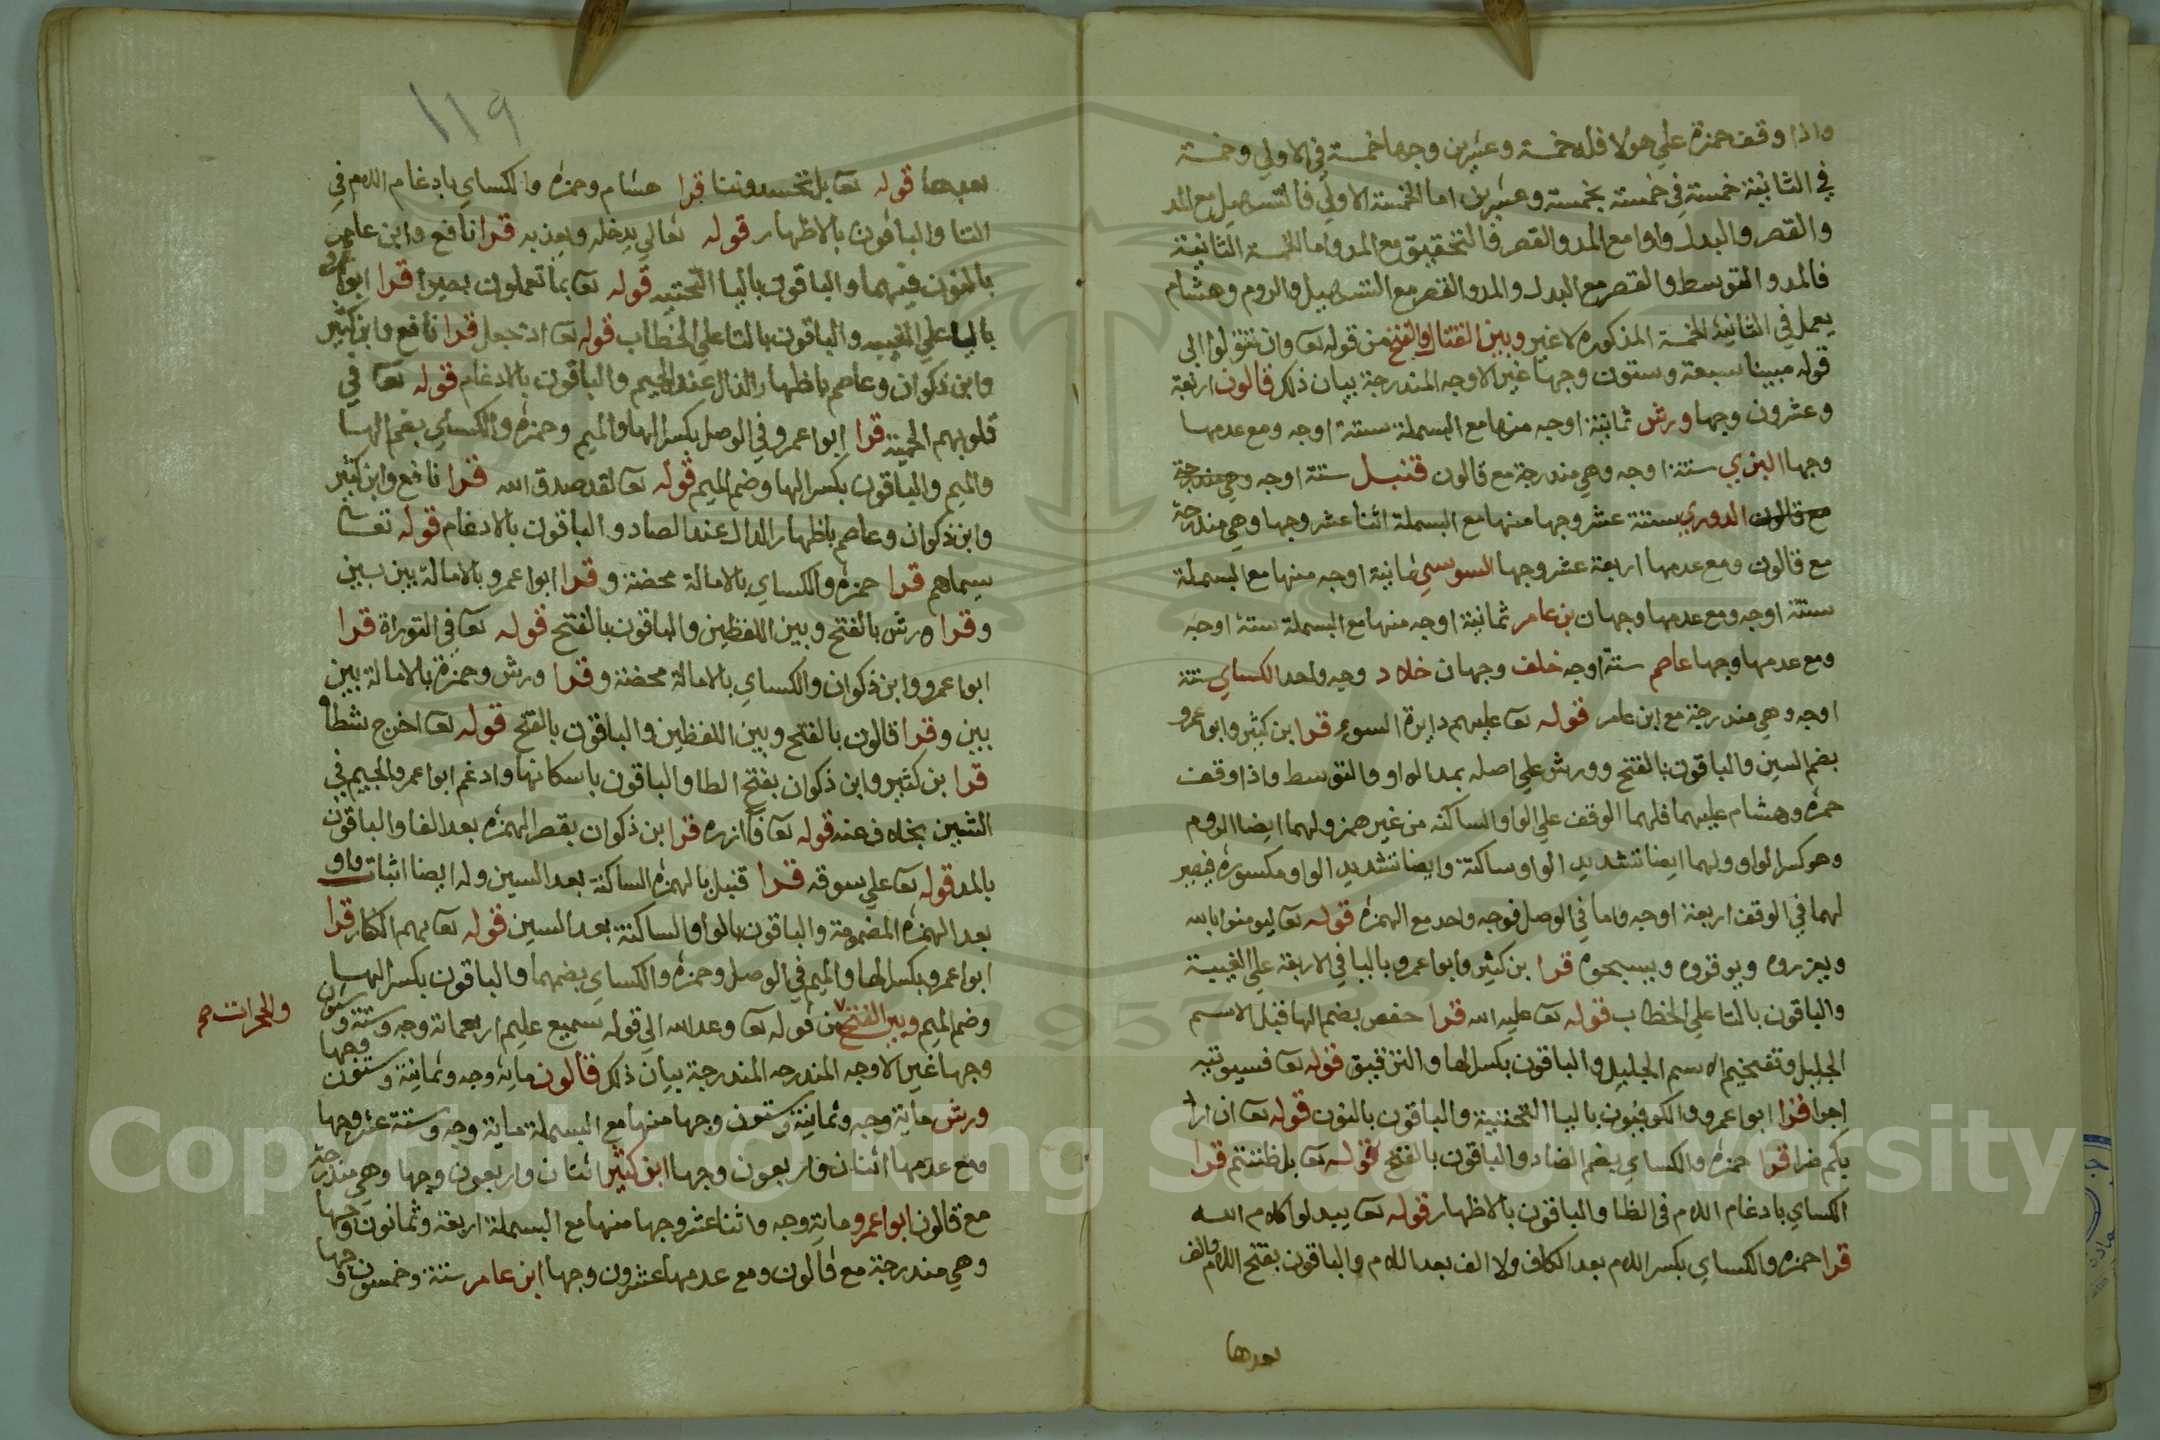 واذا وقف حمزة علي هولا فله خمسة وعشرين وجها خمسة في الاولي وخمسة
في الثانية خمسة في خمسة بخمسة وعشرين اما الخمسة الاولي فالتسهيل مع المد
والقصر والبدل واوا مع المد والقصر فالتحقيق مع المد واما الخمسة الثانية
فالمد والتوسط والقصر مع البدل والمد والقصر مع التسهيل والروم وهشام
يعمل في الثانية الخمسة المذكورة لا غير وبين القتال والفتح من قوله تعا وان تتولوا الي
قوله مبينا سبعة وستون وجها غير الاوجه المندرجة بيان ذلك قالون اربعة
وعشرون وجها ورش ثمانية اوجه منها مع البسملة ستة اوجه ومع عدمها
وجها البزي ستة اوجه وهي مندرجة مع قالون قنبل ستة اوجه وهي مندرجة
مع قالون الدوري ستة عشر وجها منها مع البسملة اثنا عشر وجها وهي مندرجة
مع قالون ومع عدمها اربعة عشر وجها السوسي ثمانية اوجه منها مع البسملة
ستة اوجه ومع عدمها وجهان بن عامر ثمانية اوجه منها مع البسملة ستة اوجه
ومع عدمها وجها عاصم ستة اوجه خلف وجهان خلاد وجه واحد الكساي ستة
اوجه وهي مندرجة مع ابن عامر قوله تعا عليهم دايرة السوء قرا بن كثير وابو عمرو
بضم السين والباقون بالفتح وورش علي اصله بمد الواو والتوسط واذا وقف
حمزه وهشام عليهما فلهما الوقف علي الواو الساكنه من غير همز ولهما ايضا الروم
وهو كسر الواو ولهما ايضا تشديد الواو ساكنة وايضا تشديد الواو مكسوره فيصير
لهما في الوقف اربعة اوجه واما في الوصل فوجه واحد مع الهمزه قوله تعا ليومنوا بالله
ويعزروه ويوقروه ويسبحوه قرا بن كثير وابو عمرو بالبا في الاربعة علي الغيبة
والباقون بالتا علي الخطاب قوله تعا عليه الله قرا حفص بضم الها قبل الاسم
الجليل وتفخيم الاسم الجليل والباقون بكسر الها والترقيق قوله تعا فسيوتيه
اجرا قرا ابو عمرو والكوفيون باليا التحتية والباقون بالنون قوله تعا ان اراد
بكم ضرا قرا حمزه والكساي بضم الضاد والباقون بالفتح قوله تعا بل ظننتم قرا
الكساي بادغام اللام في الظا والباقون بالاظهار قوله تعا يبدلوا كلام الله
قرا حمزه والكساي بكسر اللام بعد الكاف ولا الف بعد اللام والباقون بفتح اللام والف
بعدها
١١٩
بعدها قوله تعا بل تحسدوننا قرا هشام وحمزه والكساي بادغام اللام في
التا والباقون بالاظهار قوله تعالي يدخله ويعذبه قرا نافع وابن عامر
بالنون فيهما والباقون باليا التحتيه قوله تعا بما تعملون بصيرا قرا ابو عمرو
باليا علي الغيبه والباقون بالتا علي الخطاب قوله تعا اذ جعل قرا نافع وابن كثير
وابن ذكوان وعاصم باظهار الذال عند الجيم والباقون بالادغام قوله تعا في
قلوبهم الحمية قرا ابو عمرو في الوصل بكسر الها والميم وحمزه والكساي بضم الها
والميم والباقون بكسر الها وضم الميم قوله تعا لقد صدق الله قرا نافع وابن كثير
وابن ذكوان وعاصم باظهار الدال عند الصاد والباقون بالادغام قوله تعا
سيماهم قرا حمزه والكساي بالامالة محضة وقرا ابوا عمرو بالامالة بين بين
وقرا ورش بالفتح وبين اللفظين والباقون بالفتح قوله تعا في التوراة قرا
ابوا عمرو وابن ذكوان والكساي بالامالة محضة وقرا ورش وحمزة بالامالة بين
بين وقرا قالون بالفتح وبين اللفظين والباقون بالفتح قوله تعا اخرج شطاه
قرا بن كثير وابن ذكوان بفتح الطا والباقون باسكانها وادغم ابوا عمرو الجيم في
الشين بخلاف عنه قوله تعا فآزره قرا بن ذكوان بقصر الهمزه بعد الفا والباقون
بالمد قوله تعا علي سوقه قرا قنبل بالهمزه الساكنة بعد السين وله ايضا اثبات واو
بعد الهمزه المضمومة والباقون بالواو الساكنة بعد السين قوله تعا بهم الكفار قرا
ابوا عمرو بكسر الها والميم في الوصل وحمزه والكساي بضمهما والباقون بكسر الها
وضم الميم وبين الفتح والحجرات صح من قوله تعا وعد الله الي قوله سميع عليم اربعماية وجه وستة وستون
وجها غير الاوجه المندرجه المندرجة بيان ذلك قالون مايه وجه وثمانية وستون وجها
ورش ماية وجه وثمانية وستون وجها منها مع البسملة ماية وجه وستة عشر وجها
ومع عدمها اثنان واربعون وجها ابن كثير اثنان واربعون وجها وهي مندرجة
مع قالون ابوا عمرو ماية وجه واثنا عشر وجها منها مع البسملة اربعة وثمانون وجها
وهي مندرجة مع قالون ومع عدمها عشرون وجها ابن عامر ستة وخمسون وجها
Copyright © King Saud University
1957